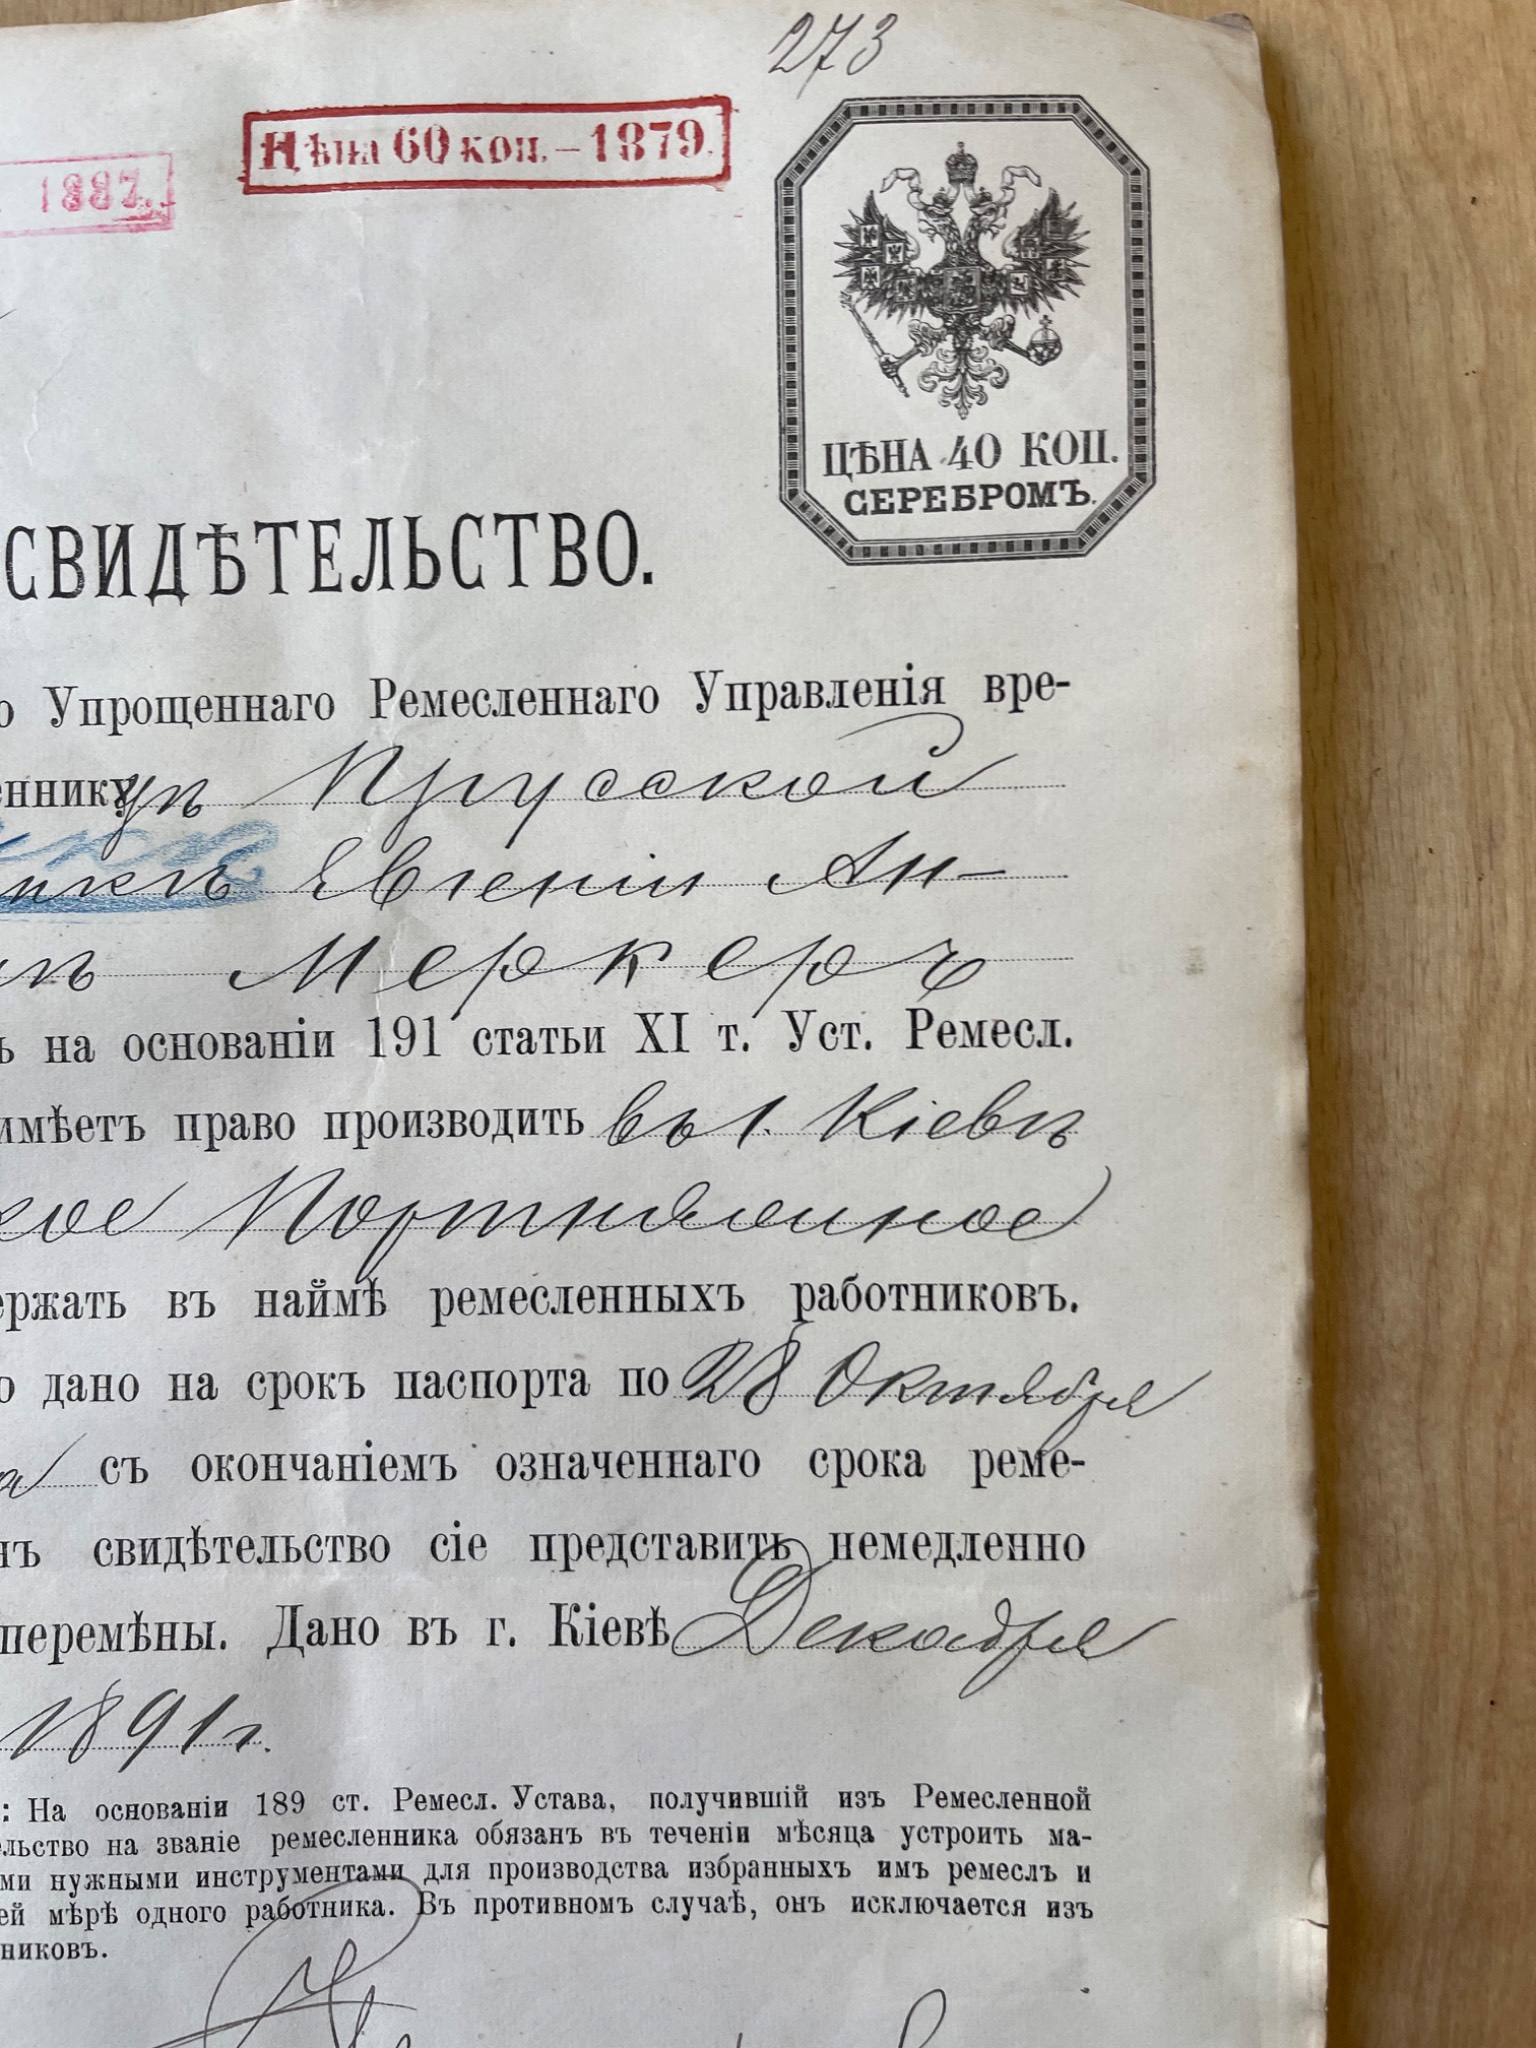 273
Цѣна 60 коп. – 1879.
1887.
ЦѢНА 40 КОП.
СЕРЕБРОМЪ.
СВИДѢТЕЛЬСТВО.
о Упрощеннаго Ремесленнаго Управленія вре-
еннику Прусской
Евгеніи Ан-
Меркеръ
ъ на основаніи 191 статьи XI т. Уст. Ремесл.
имѣетъ право производить въ г. Кіевѣ
кое Портняжное
ержать въ наймѣ ремесленныхъ работниковъ.
о дано на срокъ паспорта по 28 Октября
съ окончаніемъ означеннаго срока реме-
нъ свидѣтельство сіе представить немедленно
перемѣны. Дано въ г. Кіевѣ Декабря
1891 г.
: На основаніи 189 ст. Ремесл. Устава, получившій изъ Ремесленной
ельство на званіе ремесленника обязанъ въ теченіи мѣсяца устроить ма-
ми нужными инструментами для производства избранныхъ имъ ремеслъ и
ей мѣрѣ одного работника. Въ противномъ случаѣ, онъ исключается изъ
никовъ.